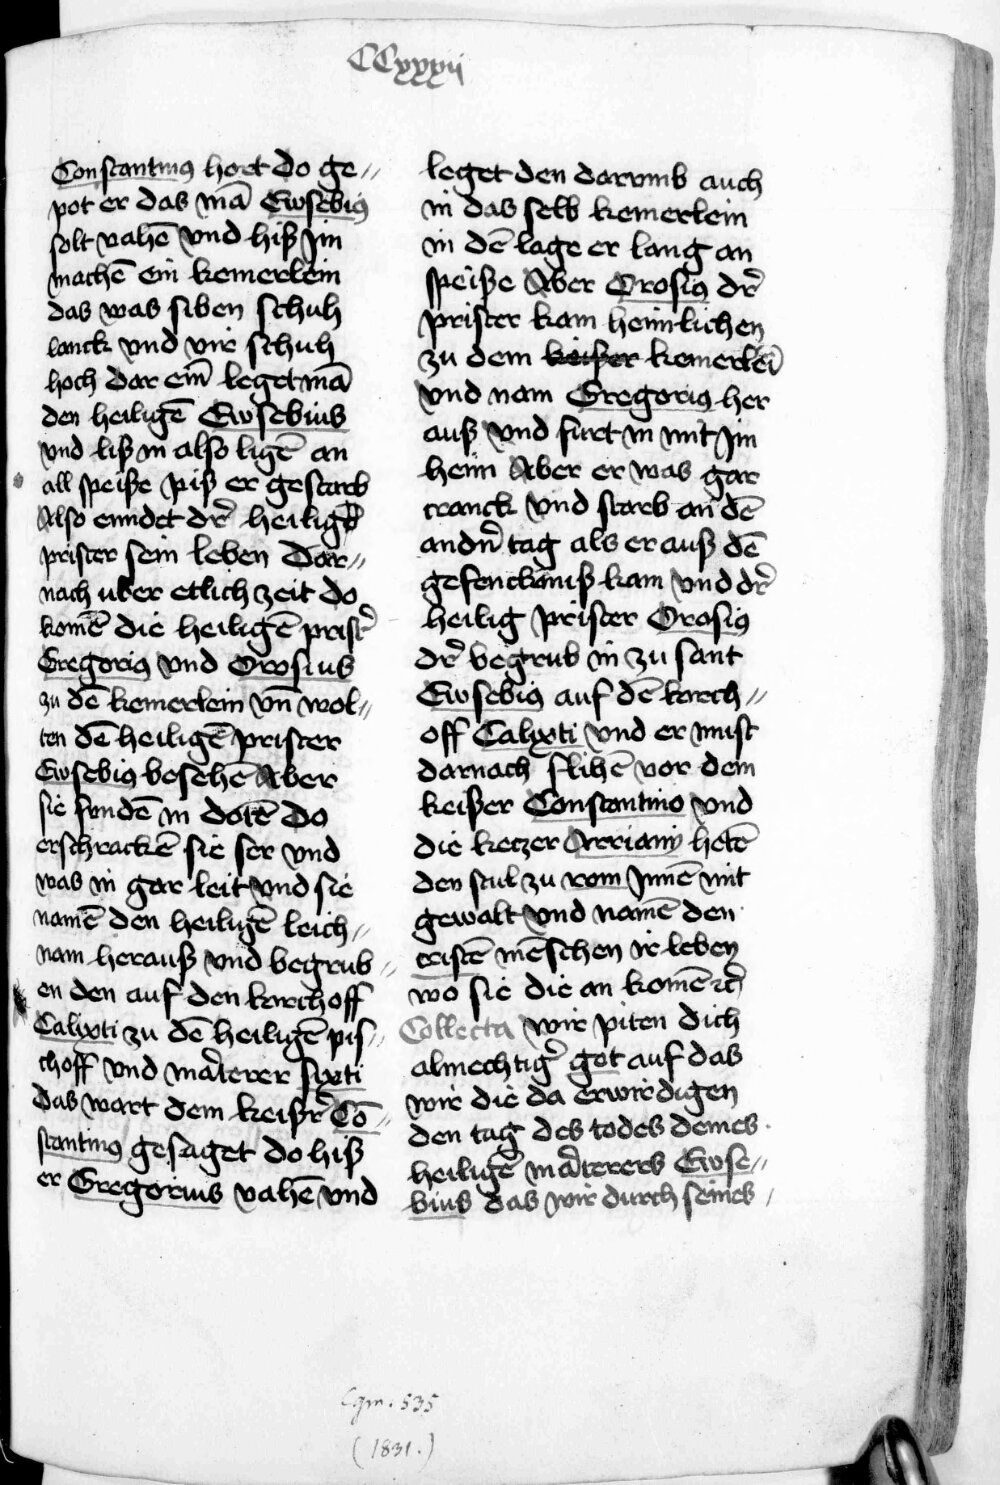 CCxxxij
Constantinus hort do ge⸗
pot er das mā Ewsebius
solt vahē vnd hiß jm
machē ein kemerlein
das was siben schuh
lanck vnd vir schuh
hoch dar ein leget mā
den heiligē Ewsebius
vnd liß in also ligē an
all speiße piß er gestarb
Also enndet dr̄ heilig
prister sein leben Dar⸗
nach uber etlich zeit do
komē die heiligē prist̄
Gregorius vnd Orosius
zu dē kemerlein vn̄ wol⸗
ten dē heiligē prister
Ewsebius besehē Aber
sie fundē in dotē Do
erschrackē sie ser vnd
was in gar leit vnd sie
namē den heiligē leich⸗
nam herauß vnd begrub⸗
en den auf den kirchoff
Calixti zu dē heiligē pis⸗
choff vnd mart̄erer sixti
Das wart dem keißr̄ Cō⸗
stantinus gesaget do hiß
er Gregorius vahē vnd
leget den darvmb auch
in das selb kemerlein
in dē lage er lang an
speiße Aber Orosius dr̄
prister kam heimlichen
zu dem keißer kemerlei̅
vnd nam Gregorius her
auß vnd furt in mit jm
heim Aber er was gar
cranck vnd starb an dē
andn̄ tag als er auß dē
gefencknuß kam vnd dr̄
heilig prister Orosius
dr̄ begrub in zu sant
Ewsebius auf dē kirch⸗
off Calixti vnd er must
darnach flihē vor dem
keißer Constantino vnd
die keczer Arriany hetē
den stul zu rom jnnē mit
gewalt vnd namē den
cristē mēschen ir leben
wo sie die an komē ꝛc̄
Collecta wir piten dich
almechtiḡ got auf das
wir die da erwirdigen
den tag des todes deines
heiligē mart̄erers Ewse⸗
bius das wir durch seines
Cgm. 535
(1831.)